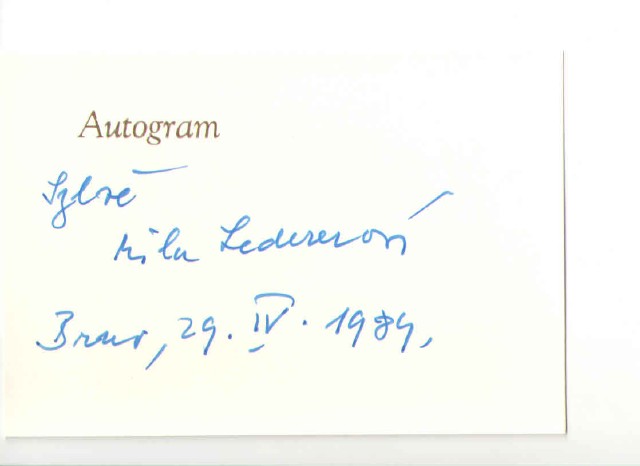 Autogram
Sylvě
Mila Ledererová
Brno, 29. IV. 1989,